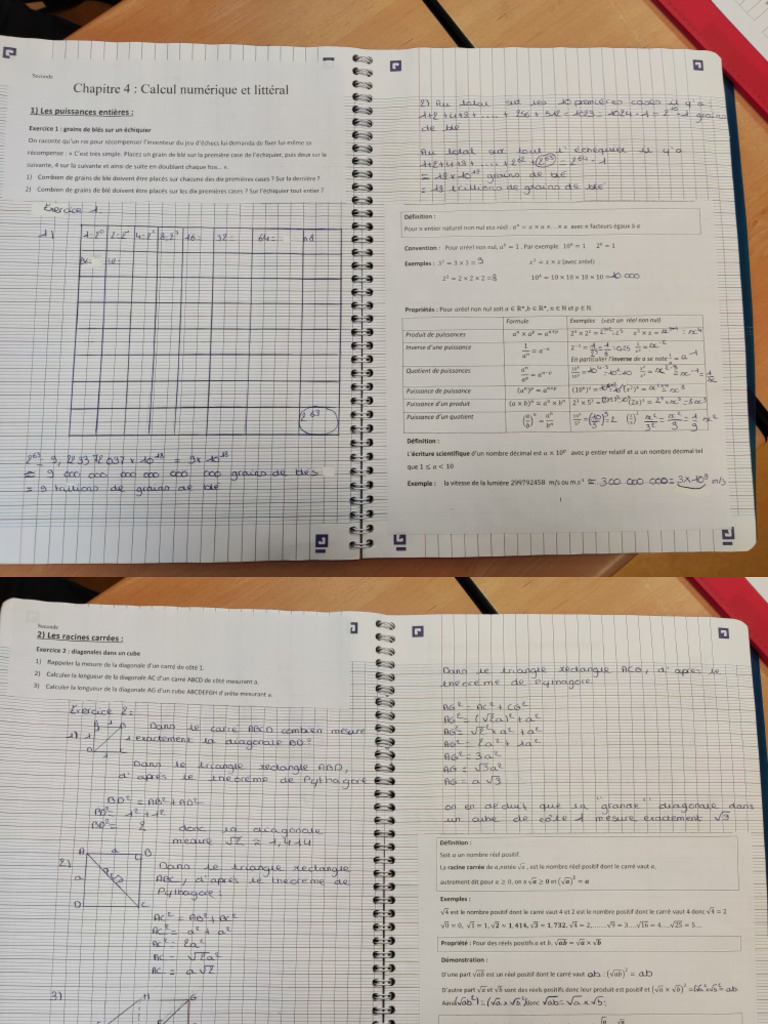 Seconde
Chapitre 4 : Calcul numérique et littéral
1) Les puissances entières :
Exercice 1 : grains de blés sur un échiquier
On raconte qu'un roi pour récompenser l'inventeur du jeu d'échecs lui demanda de fixer lui même sa
récompense : « C'est très simple. Placez un grain de blé sur la première case de l'échiquier, puis deux sur la
suivante, 4 sur la suivante et ainsi de suite en doublant chaque fois... ».
1) Combien de grains de blé doivent être placés sur chacune des dix premières cases ? Sur la dernière ?
2) Combien de grains de blé doivent être placés sur les dix premières cases ? Sur l'échiquier tout entier ?
Exercice 1.
1)
1=2⁰ 2=2¹ 4=2² 8=2³ 16= 32= 64=
2⁶³
2⁶³ = 9,223372037 × 10¹⁸ ≈ 9×10¹⁸
≈ 9 000 000 000 000 000 000 grains de blés
= 9 trillions de grains de blé
2) Au total sur les 10 premières cases il y a
1+2+4+8+.....+256+512=1023=1024-1=2¹⁰-1 grains
de blé
Au total sur tout l'échéquier il y a
1+2+4+8+.....+2⁶²+2⁶³=2⁶⁴-1
≈ 18×10¹⁸ grains de blé
= 18 trillions de grains de blé
Définition :
Pour n entier naturel non nul et a réel : aⁿ = a × a × ... × a avec n facteurs égaux à a
Convention : Pour a réel non nul, a⁰ = 1. Par exemple 10⁰ = 1 2⁰ = 1
Exemples : 3² = 3 × 3 = 9 x² = x × x (avec x réel)
2³ = 2 × 2 × 2 = 8 10⁴ = 10 × 10 × 10 × 10 = 10 000
Propriétés : Pour a réel non nul soit a ∈ ℝ*, b ∈ ℝ*, n ∈ ℕ et p ∈ ℕ
Formule Exemples (x est un réel non nul)
Produit de puissances aⁿ × aᵖ = aⁿ⁺ᵖ
Inverse d'une puissance 1/aⁿ = a⁻ⁿ
En particulier l'inverse de a se note 1/a = a⁻¹
Quotient de puissances aⁿ/aᵖ = aⁿ⁻ᵖ
Puissance de puissance (aⁿ)ᵖ = aⁿˣᵖ
Puissance d'un produit (a × b)ⁿ = aⁿ × bⁿ
Puissance d'un quotient (a/b)ⁿ = aⁿ/bⁿ
Définition :
L'écriture scientifique d'un nombre décimal est a × 10ᵖ avec p entier relatif et a un nombre décimal tel
que 1 ≤ a < 10
Exemple : la vitesse de la lumière 299792458 m/s ou m.s⁻¹ ≈ 300 000 000 = 3×10⁸ m/s
1
Seconde
2) Les racines carrées :
Exercice 2 : diagonales dans un cube
1) Rappeler la mesure de la diagonale d'un carré de côté 1.
2) Calculer la longueur de la diagonale AC d'un carre ABCD de côté mesurant a.
3) Calculer la longueur de la diagonale AG d'un cube ABCDEFGH d'arête mesurant a.
Exercice 2:
1)
Dans le carré ABCD combien mesure
exactement la diagonale BD?
Dans le triangle rectangle ABD,
d'après le théorème de Pythagore
BD² = AB² + AD²
BD² = 1² + 1²
BD² = 2 donc la diagonale
mesure √2 ≈ 1,414
2)
A a B
a
D C
Dans le triangle rectangle
ABC, d'après le théorème de
Pythagore:
AC² = AB² + BC²
AC² = a² + a²
AC² = 2a²
AC = √2a²
AC = a√2
3)
H G
Dans le triangle rectangle ACG, d'après le
théorème de Pythagore
AG² = AC² + CG²
AG² = (√2a)² + a²
AG² = √2² × a² + a²
AG² = 2a² + 1a²
AG² = 3a²
AG = √3a²
AG = a√3
on en déduit que la "grande" diagonale dans
un cube de côté 1 mesure exactement √3
Définition :
Soit a un nombre réel positif.
La racine carrée de a, notée √a, est le nombre réel positif dont le carré vaut a.
autrement dit pour a ≥ 0, on a √a ≥ 0 et (√a)² = a
Exemples :
√4 est le nombre positif dont le carré vaut 4 et 2 est le nombre positif dont le carré vaut 4 donc √4 = 2
√0 = 0, √1 = 1, √2 ≈ 1,414, √3 ≈ 1,732, √4 = 2, ......√9 = 3...√16 = 4....√25 = 5...
Propriété : Pour des réels positifs a et b, √ab = √a × √b
Démonstration :
D'une part √ab est un réel positif dont le carré vaut ab : (√ab)² = ab
D'autre part √a et √b sont des réels positifs donc leur produit est positif et (√a × √b)² = √a²×√b² = ab
Ainsi (√ab)² = (√a × √b)² donc √ab = √a × √b